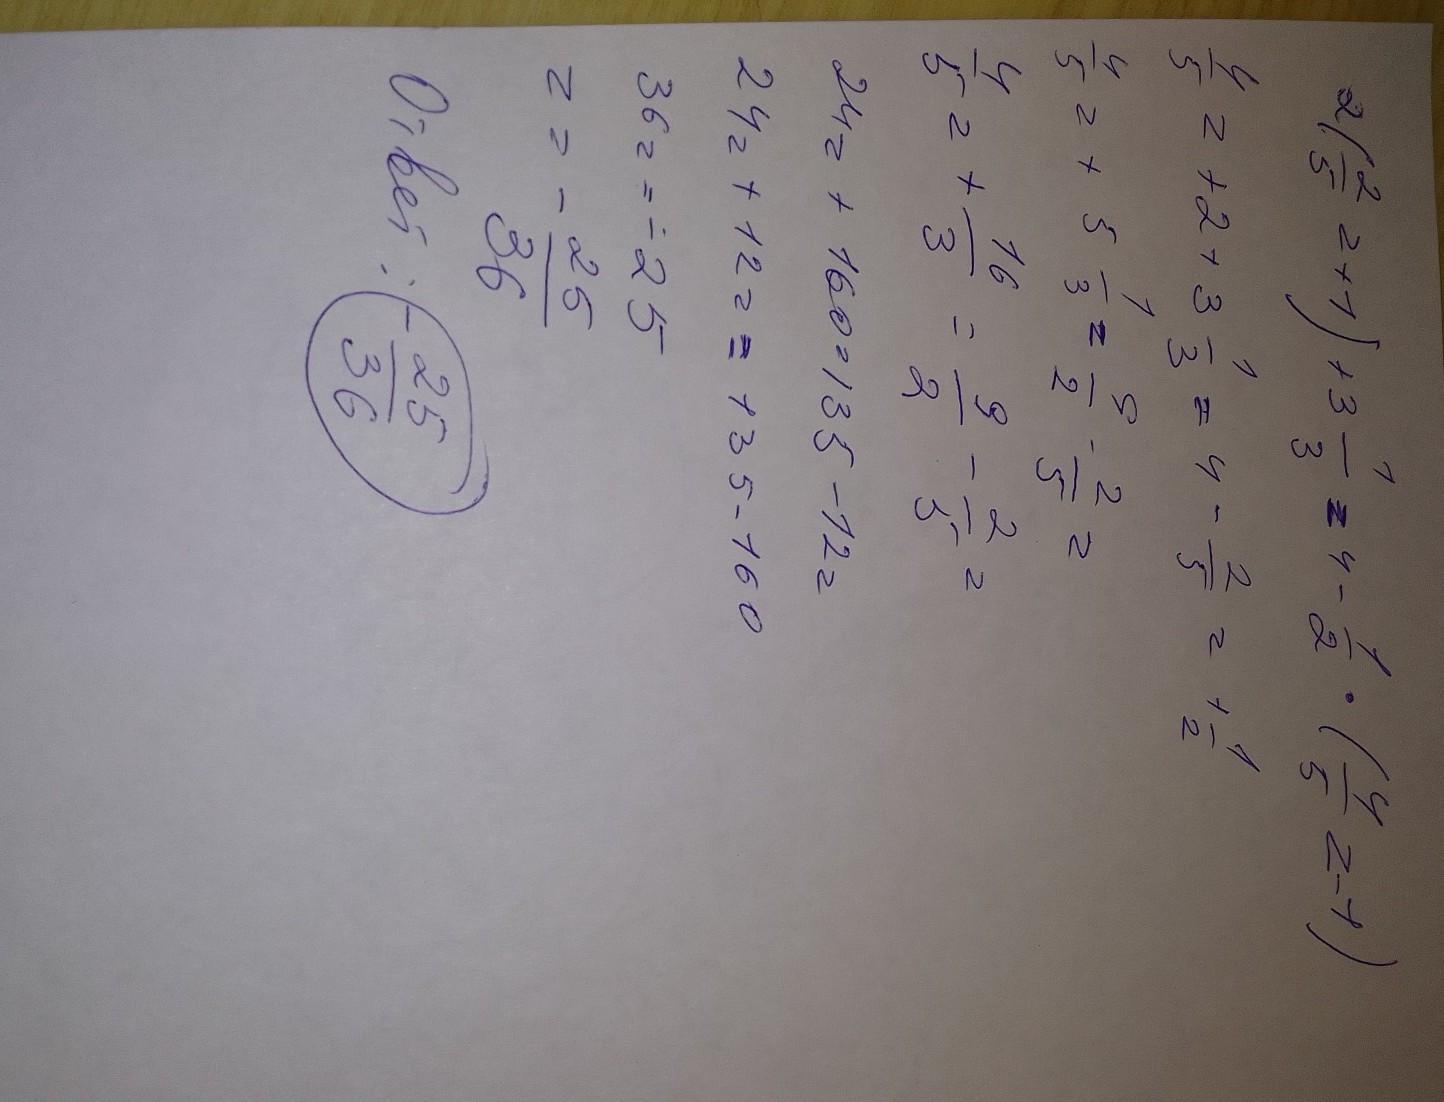 2(2/5 z+1)+3 1/3 = 4 - 1/2 · (4/5 z-1)
4/5 z+2+3 1/3 = 4 - 2/5 z + 1/2
4/5 z + 5 1/3 = 9/2 - 2/5 z
4/5 z + 16/3 = 9/2 - 2/5 z
24z + 160=135-12z
24z+12z=135-160
36z=-25
z=-25/36
Ответ: -25/36